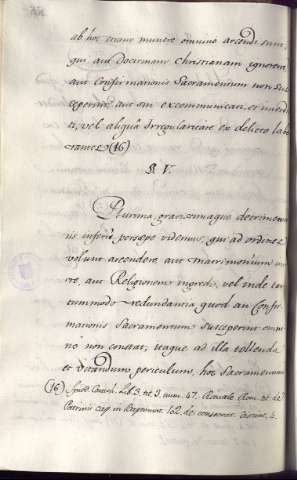 ab hoc etiam munere omnino arcendi sunt,
qui aut Doctrinam Christianam ignorent
aut Confirmationis Sacramentum non sus
ceperint, aut sint excommunicati, et interdic
ti, vel aliqua Irregularitate ex delicto labo
rantes (46)
§. V.
Plurima, gravissimaque detrimenta
nis inferri persepe videmus, qui ad ordines
volunt ascendere, aut matrimonium ini
re, aut Religionem ingredi, vel inde tan
tummodo redundantia quod an Confir
mationis Sacramentum susceperint omni
no non constat, itaque ad illa tollenda
et vitandum periculum, hoc Sacramentum
(46) Synod. Lib. 3. tit. 3. num. 47. Rituale Rom. tit. de
Patrinis cap. in Baptismate 102. de consecrat. distinct. 4.